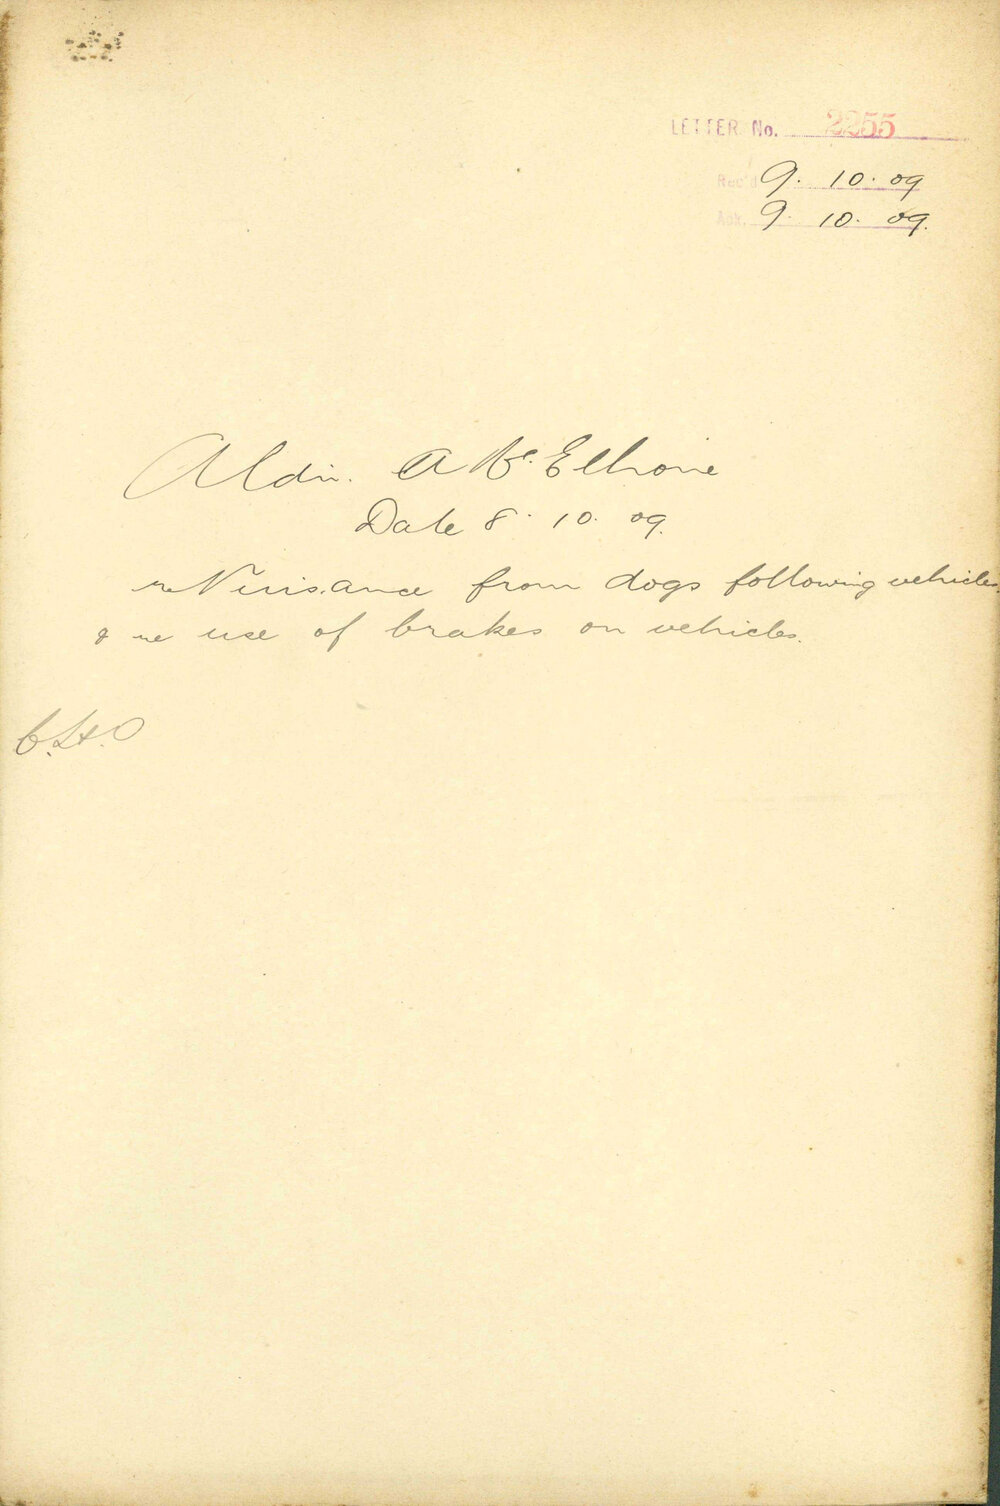 LETTER No. 2255
Rec'd 9. 10. 09
Ack. 9. 10. 09.
Aldn. A McElhone
Date 8. 10. 09.
re Nuisance from dogs following vehicles
& re use of brakes on vehicles.